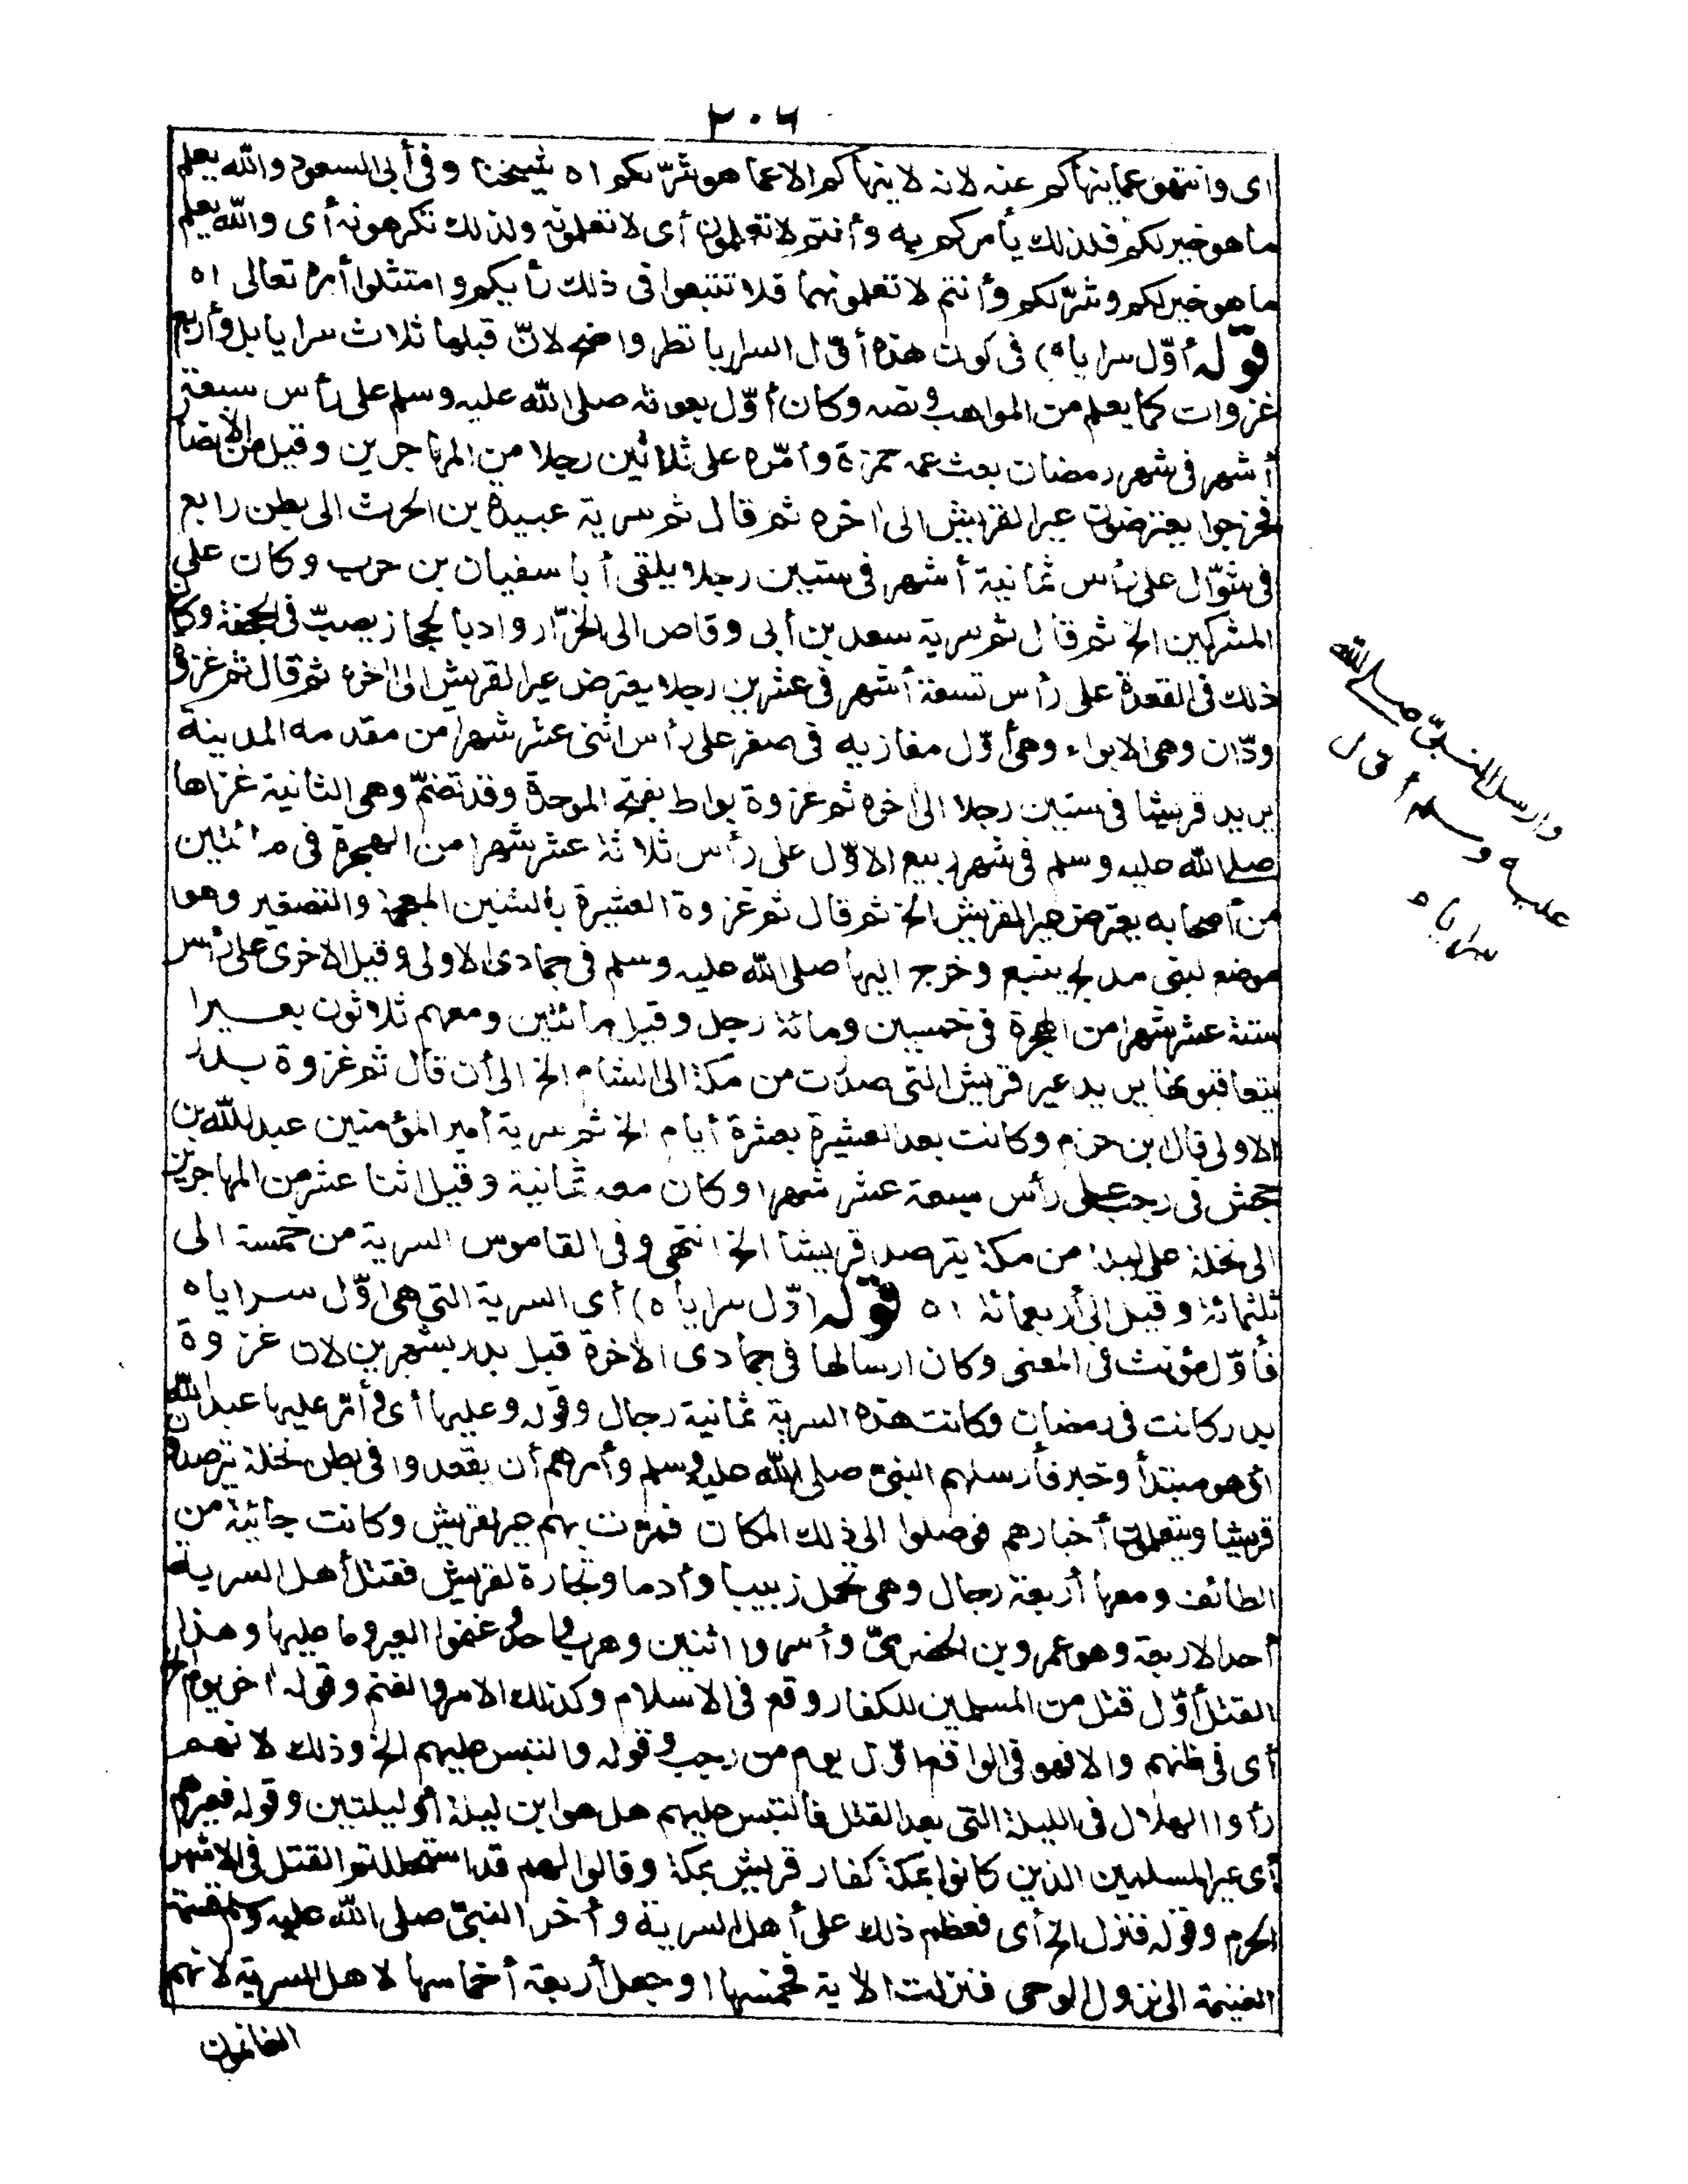 ٢٠٦
اى وانتهوا عما ينهاكم عنه لانه لا ينهاكم الا عما هو شرّ لكم اه شيخنا وفى أبى السعود والله يعلم
ما هو خير لكم فلذلك يأمركم به وأنتم لا تعلمون أى لا تعلمونه ولذلك تكرهونه أى والله يعلم
ما هو خير لكم وشرّ لكم وأنتم لا تعلمونهما فلا تتبعوا فى ذلك رأيكم وامتثلوا أمره تعالى اه
قوله أوّل سراياه) فى كون هذه أوّل السرايا نظر واضح لانّ قبلها ثلاث سرايا بل وأربع
غزوات كما يعلم من المواهب ونصه وكان أوّل بعوثه صلى الله عليه وسلم على رأس سبعة
أشهر فى شهر رمضان بعث عمه حمزة وأمّره على ثلاثين رجلا من المهاجرين وقيل من الانصار
فخرجوا يعترضون عيرا لقريش الى اخره ثم قال ثم سرية عبيدة بن الحرث الى بطن رابغ
فى شوّال على رأس ثمانية أشهر فى ستين رجلا يلقى أبا سفيان بن حرب وكان على
المشركين الخ ثم قال ثم سرية سعد بن أبى وقاص الى الخرّار واد بالحجاز يصبّ فى الجحفة وكان
ذلك فى القعدة على رأس تسعة أشهر فى عشرين رجلا يعترض عيرا لقريش الى اخره ثم قال ثم غزوة
ودّان وهى الابواء وهى أوّل مغازيه فى صفر على رأس اثنى عشر شهرا من مقدمه المدينة
يريد قريشا فى ستين رجلا الى اخره ثم غزوة بواط بفتح الموحدة وقد تضمّ وهى الثانية غزاها
صلى الله عليه وسلم فى شهر ربيع الاوّل على رأس ثلاثة عشر شهرا من الهجرة فى مائتين
من أصحابه يعترض عيرا لقريش الخ ثم قال ثم غزوة العشيرة بالشين المعجمة والتصغير وهو
موضع لبنى مدلج بينبع وخرج اليها صلى الله عليه وسلم فى جمادى الاولى وقيل الاخرى على رأس
ستة عشر شهرا من الهجرة فى خمسين ومائة رجل وقيل مائتين ومعهم ثلاثون بعيرا
يتعاقبونها يريد عير قريش التى صدرت من مكة الى الشام الخ الى أن قال ثم غزوة بدر
الاولى قال بن حزم وكانت بعد العشيرة بعشرة أيام الخ ثم سرية أمير المؤمنين عبد الله بن
جحش فى رجب على رأس سبعة عشر شهرا وكان معه ثمانية وقيل اثنا عشر من المهاجرين
الى نخلة على ليلة من مكة يترصد قريشا الخ انتهى وفى القاموس السرية من خمسة الى
ثلثمائة وقيل الى أربعمائة اه قوله اوّل سراياه) أى السرية التى هى اوّل سراياه
فأوّل مؤنث فى المعنى وكان ارسالها فى جمادى الاخرة قبل بدر بشهرين لان غزوة
بدر كانت فى رمضان وكانت هذه السرية ثمانية رجال وقوله وعليها أى وأمّر عليها عبد الله
أى هو مبتدأ وخبر فأرسلهم النبىّ صلى الله عليه وسلم وأمرهم أن يقعدوا فى بطن نخلة يترصدون
قريشا ويتعلمون أخبارهم فوصلوا الى ذلك المكان فمرّت بهم عير لقريش وكانت جائية من
الطائف ومعها أربعة رجال وهى تحمل زبيبا وأدما وتجارة لقريش فقتل أهل السرية
أحد الاربعة وهو عمرو بن الحضرمىّ وأسروا اثنين وهرب واحد وغنموا العير وما عليها وهذا
القتل أوّل قتل من المسلمين للكفار وقع فى الاسلام وكذلك الاسر والغنم وقوله اخر يوم الخ
أى فى ظنهم والا فهو فى الواقع اوّل يوم من رجب وقوله والتبس عليهم الخ وذلك لانهم
رأوا الهلال فى الليلة التى بعد القتل فالتبس عليهم هل هو ابن ليلة أو ليلتين وقوله فعيرهم
أى عير المسلمين الذين كانوا بمكة كفار قريش بمكة وقالوا لهم قد استحللتم القتل فى الاشهر
الحرم وقوله فنزل الخ أى فعظم ذلك على أهل السرية وأخر النبىّ صلى الله عليه وسلم قسمة
الغنيمة الى نزول الوحى فنزلت الاية فخمسها وجعل أربعة أخماسها لاهل السرية لانهم
الغانمون
وارسل النبىّ صلى الله
عليه وسلم أوّل
سراياه